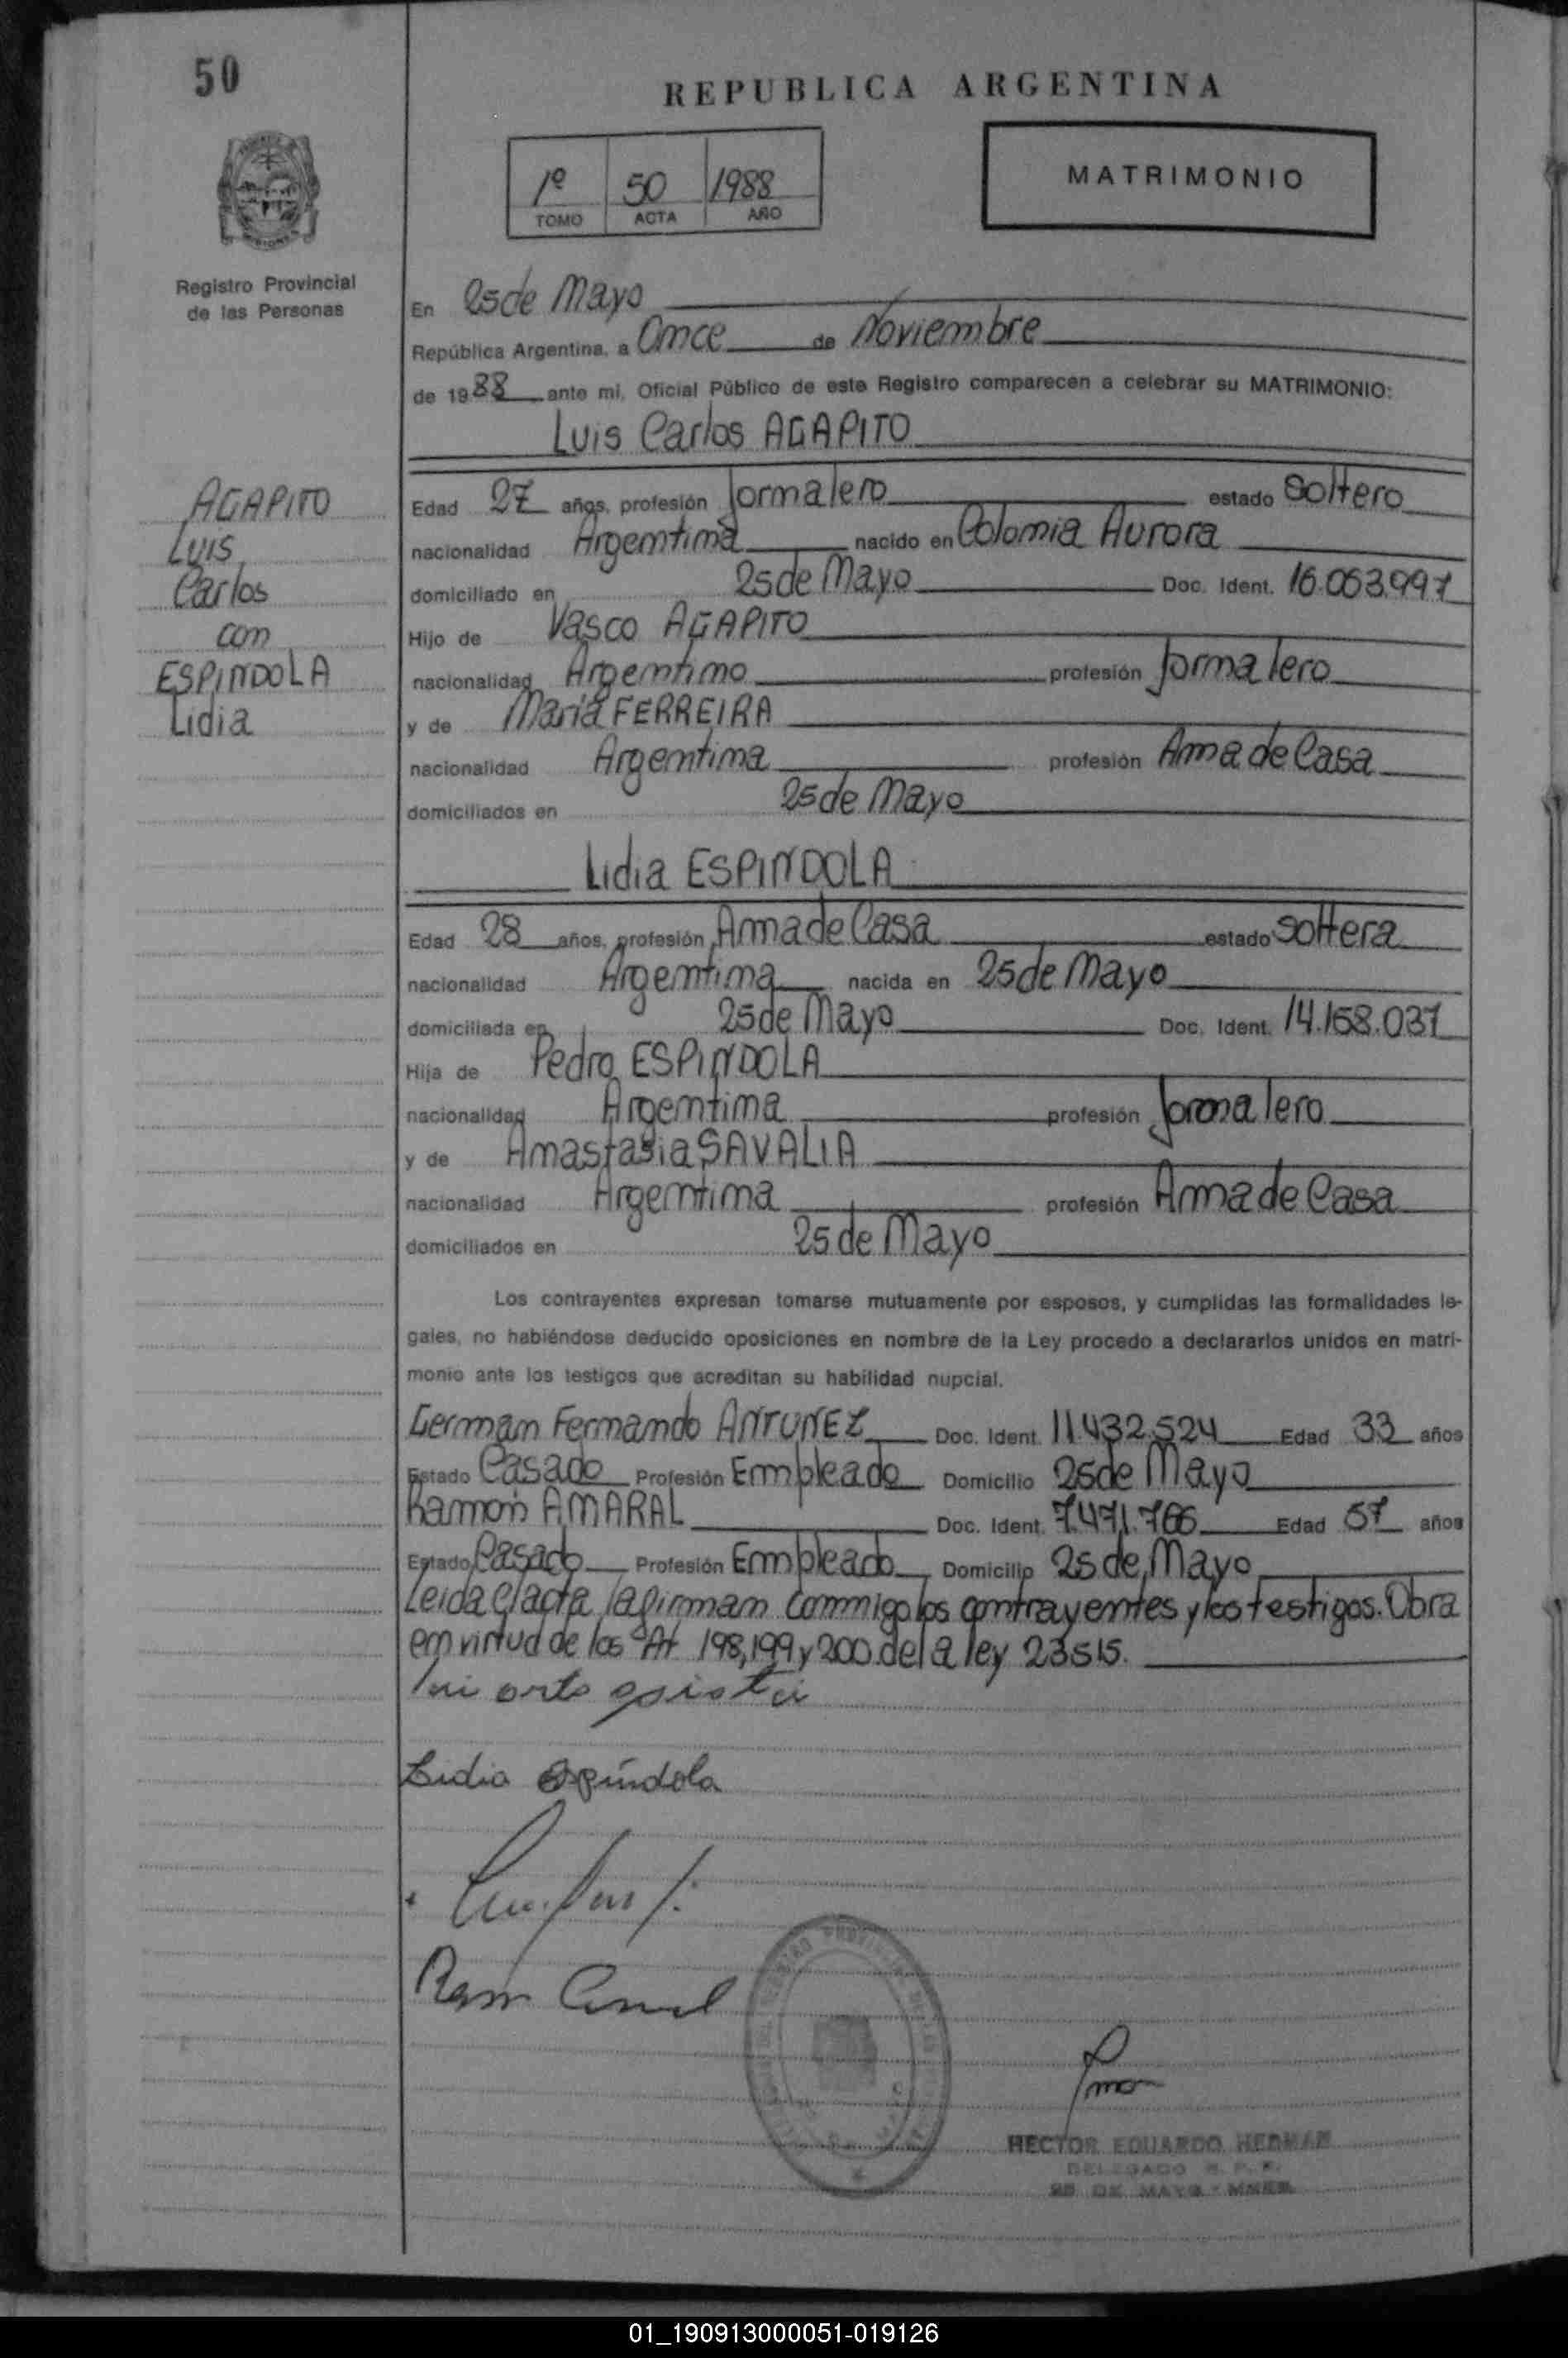 50
REPUBLICA ARGENTINA
1º 50 1988
TOMO ACTA AÑO
MATRIMONIO
Registro Provincial
de las Personas
En 25 de Mayo
República Argentina, a Once de Noviembre
de 1988 ante mi, Oficial Público de este Registro comparecen a celebrar su MATRIMONIO:
Luis Carlos AGAPITO
AGAPITO
Luis
Carlos
con
ESPINDOLA
Lidia
Edad 27 años, profesión Jornalero estado Soltero
nacionalidad Argentina nacido en Colonia Aurora
domiciliado en 25 de Mayo Doc. Ident. 16.063.997
Hijo de Vasco AGAPITO
nacionalidad Argentino profesión Jornalero
y de Maria FERREIRA
nacionalidad Argentina profesión Ama de Casa
domiciliados en 25 de Mayo
Lidia ESPINDOLA
Edad 28 años, profesión Ama de Casa estado Soltera
nacionalidad Argentina nacida en 25 de Mayo
domiciliada en 25 de Mayo Doc. Ident. 14.168.037
Hija de Pedro ESPINDOLA
nacionalidad Argentina profesión Jornalero
y de Anastasia SAVALIA
nacionalidad Argentina profesión Ama de Casa
domiciliados en 25 de Mayo
Los contrayentes expresan tomarse mutuamente por esposos, y cumplidas las formalidades le-
gales, no habiéndose deducido oposiciones en nombre de la Ley procedo a declararlos unidos en matri-
monio ante los testigos que acreditan su habilidad nupcial.
German Fernando ANTUNEZ Doc. Ident. 11.432.524 Edad 33 años
Estado Casado Profesión Empleado Domicilio 25 de Mayo
Ramón AMARAL Doc. Ident. 7.471.766 Edad 57 años
Estado Casado Profesión Empleado Domicilio 25 de Mayo
Leida el acta la firman conmigo los contrayentes y los testigos. Obra
en virtud de los At 198, 199 y 200 de la ley 23515.
Lidia Espíndola
HECTOR EDUARDO HEDMAN
DELEGADO R. P. P.
25 DE MAYO - MNES
01_190913000051-019126